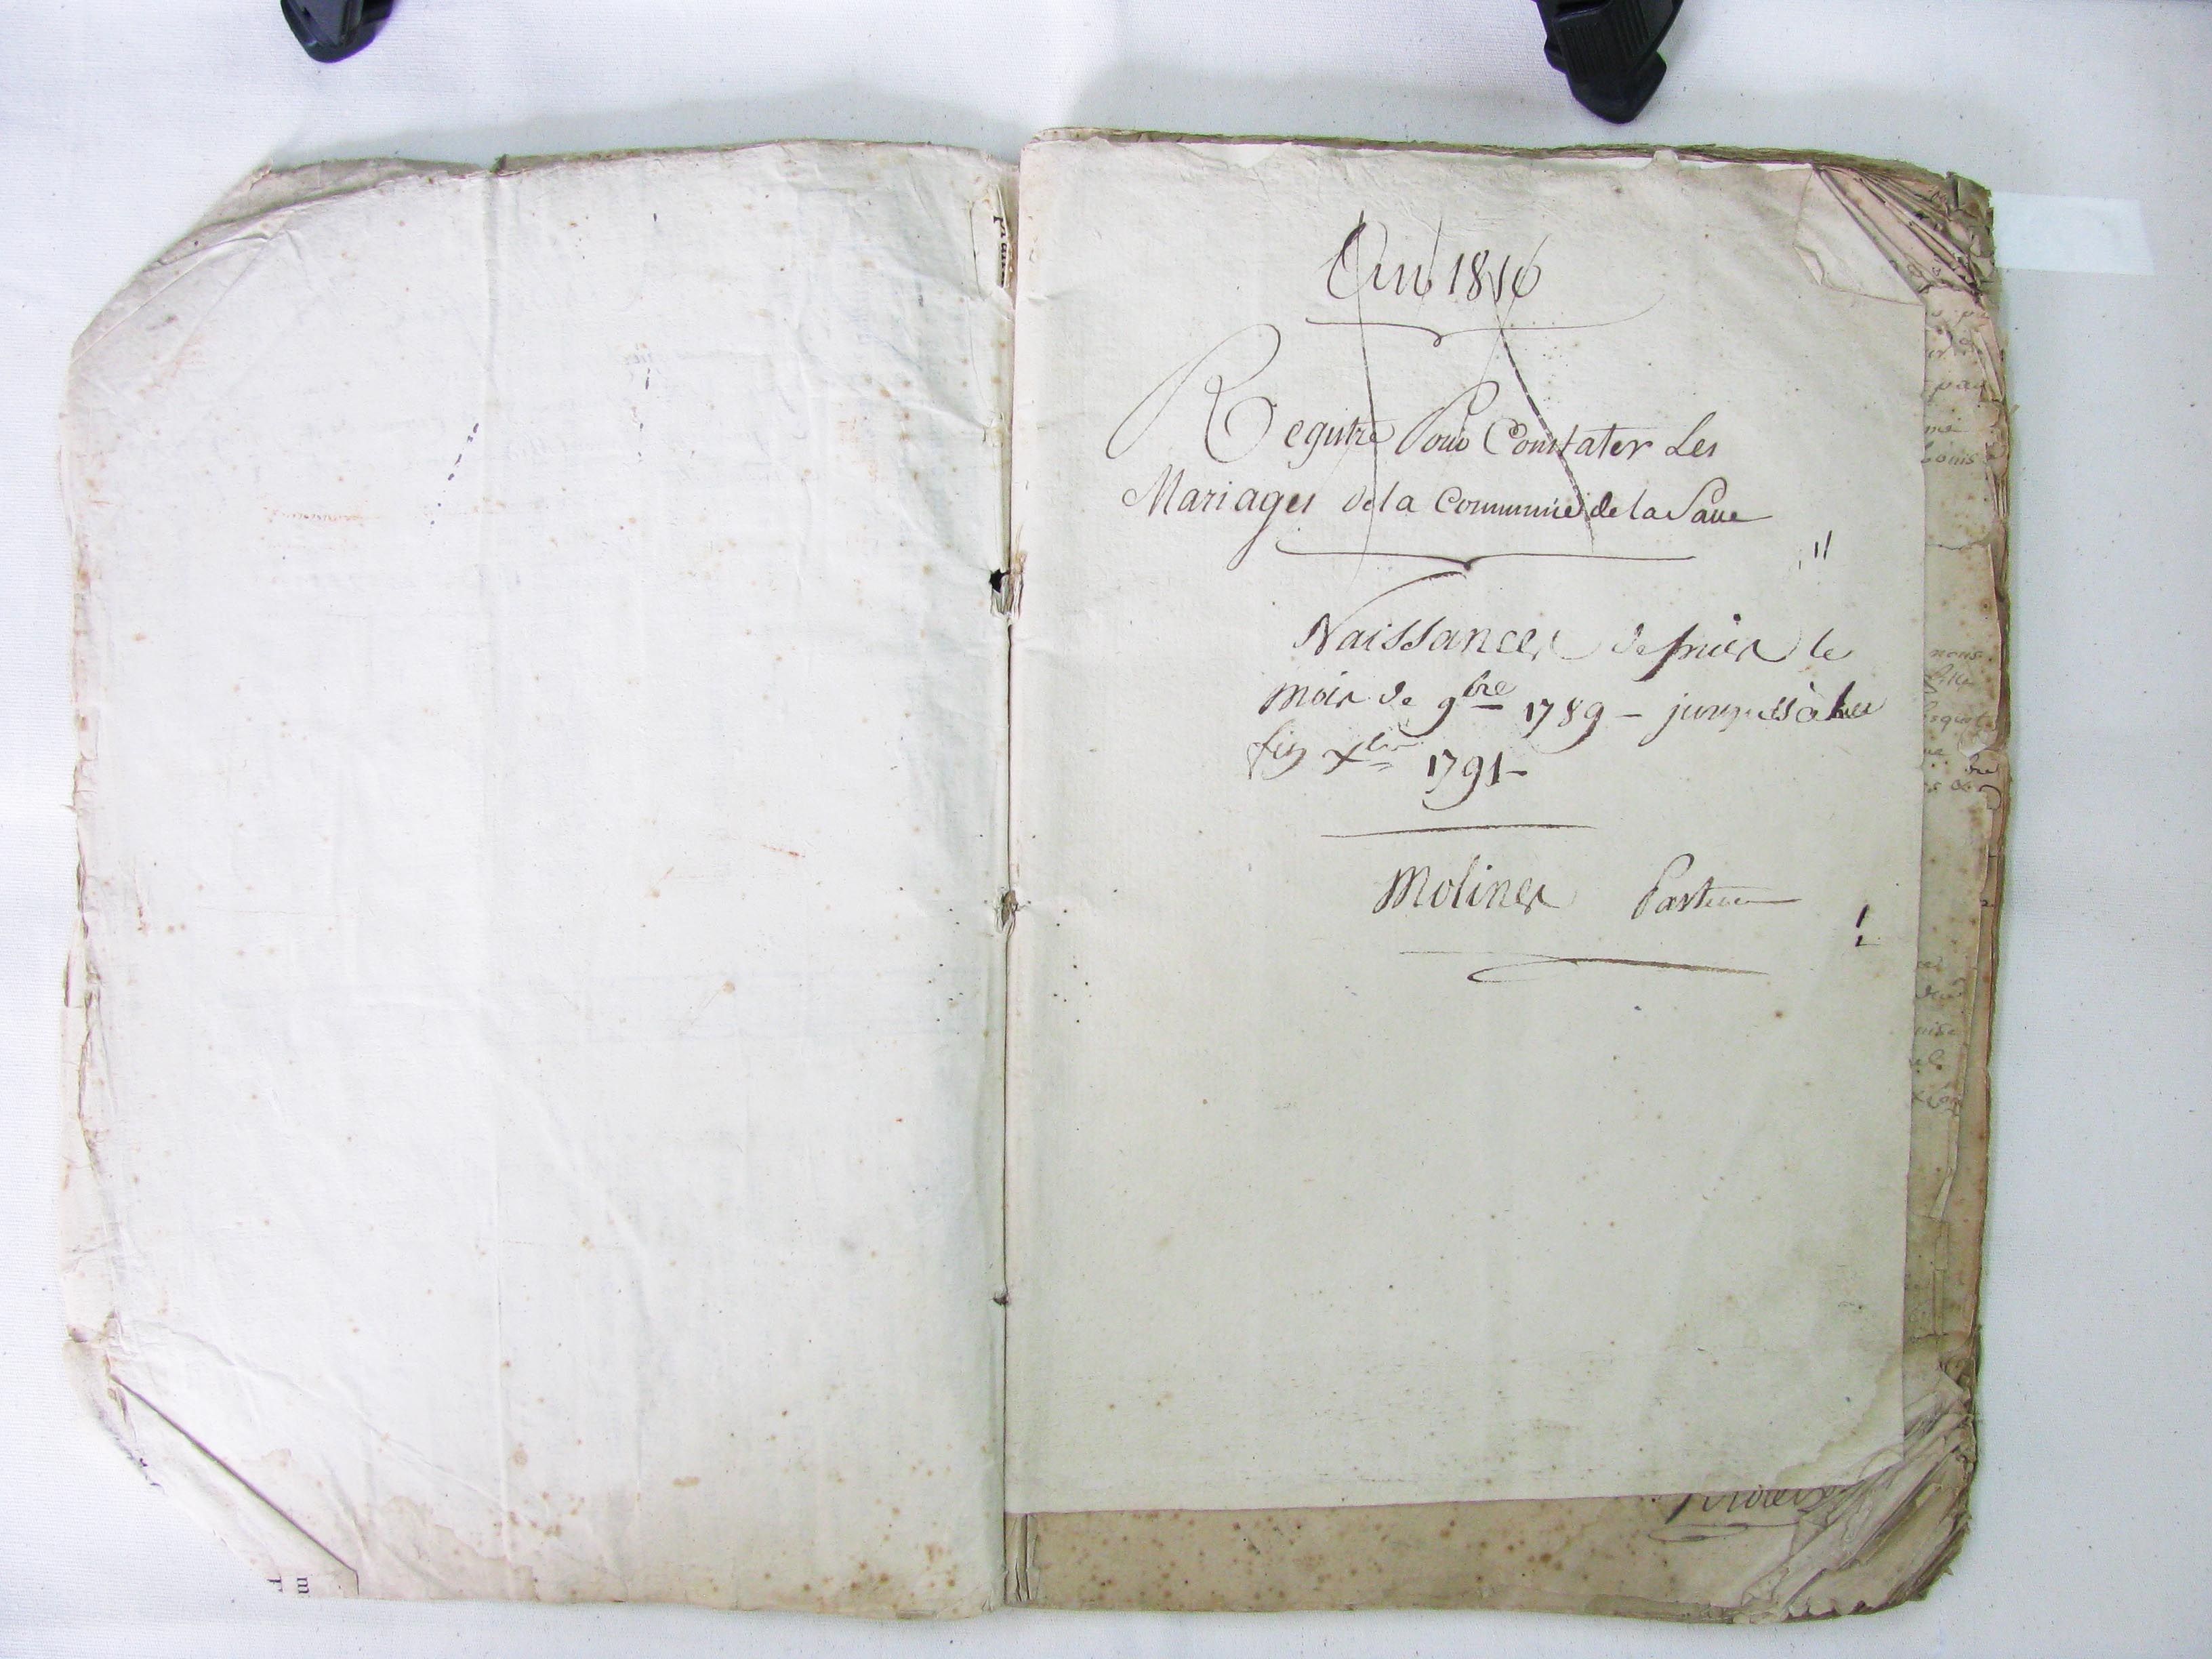 An 1816
Registre Pour Constater Les
Mariages de la Commune de la Sauve
Naissances depuis le
mois de 9bre 1789 - jusques à la
fin Xbre 1791-
Molines Pasteur